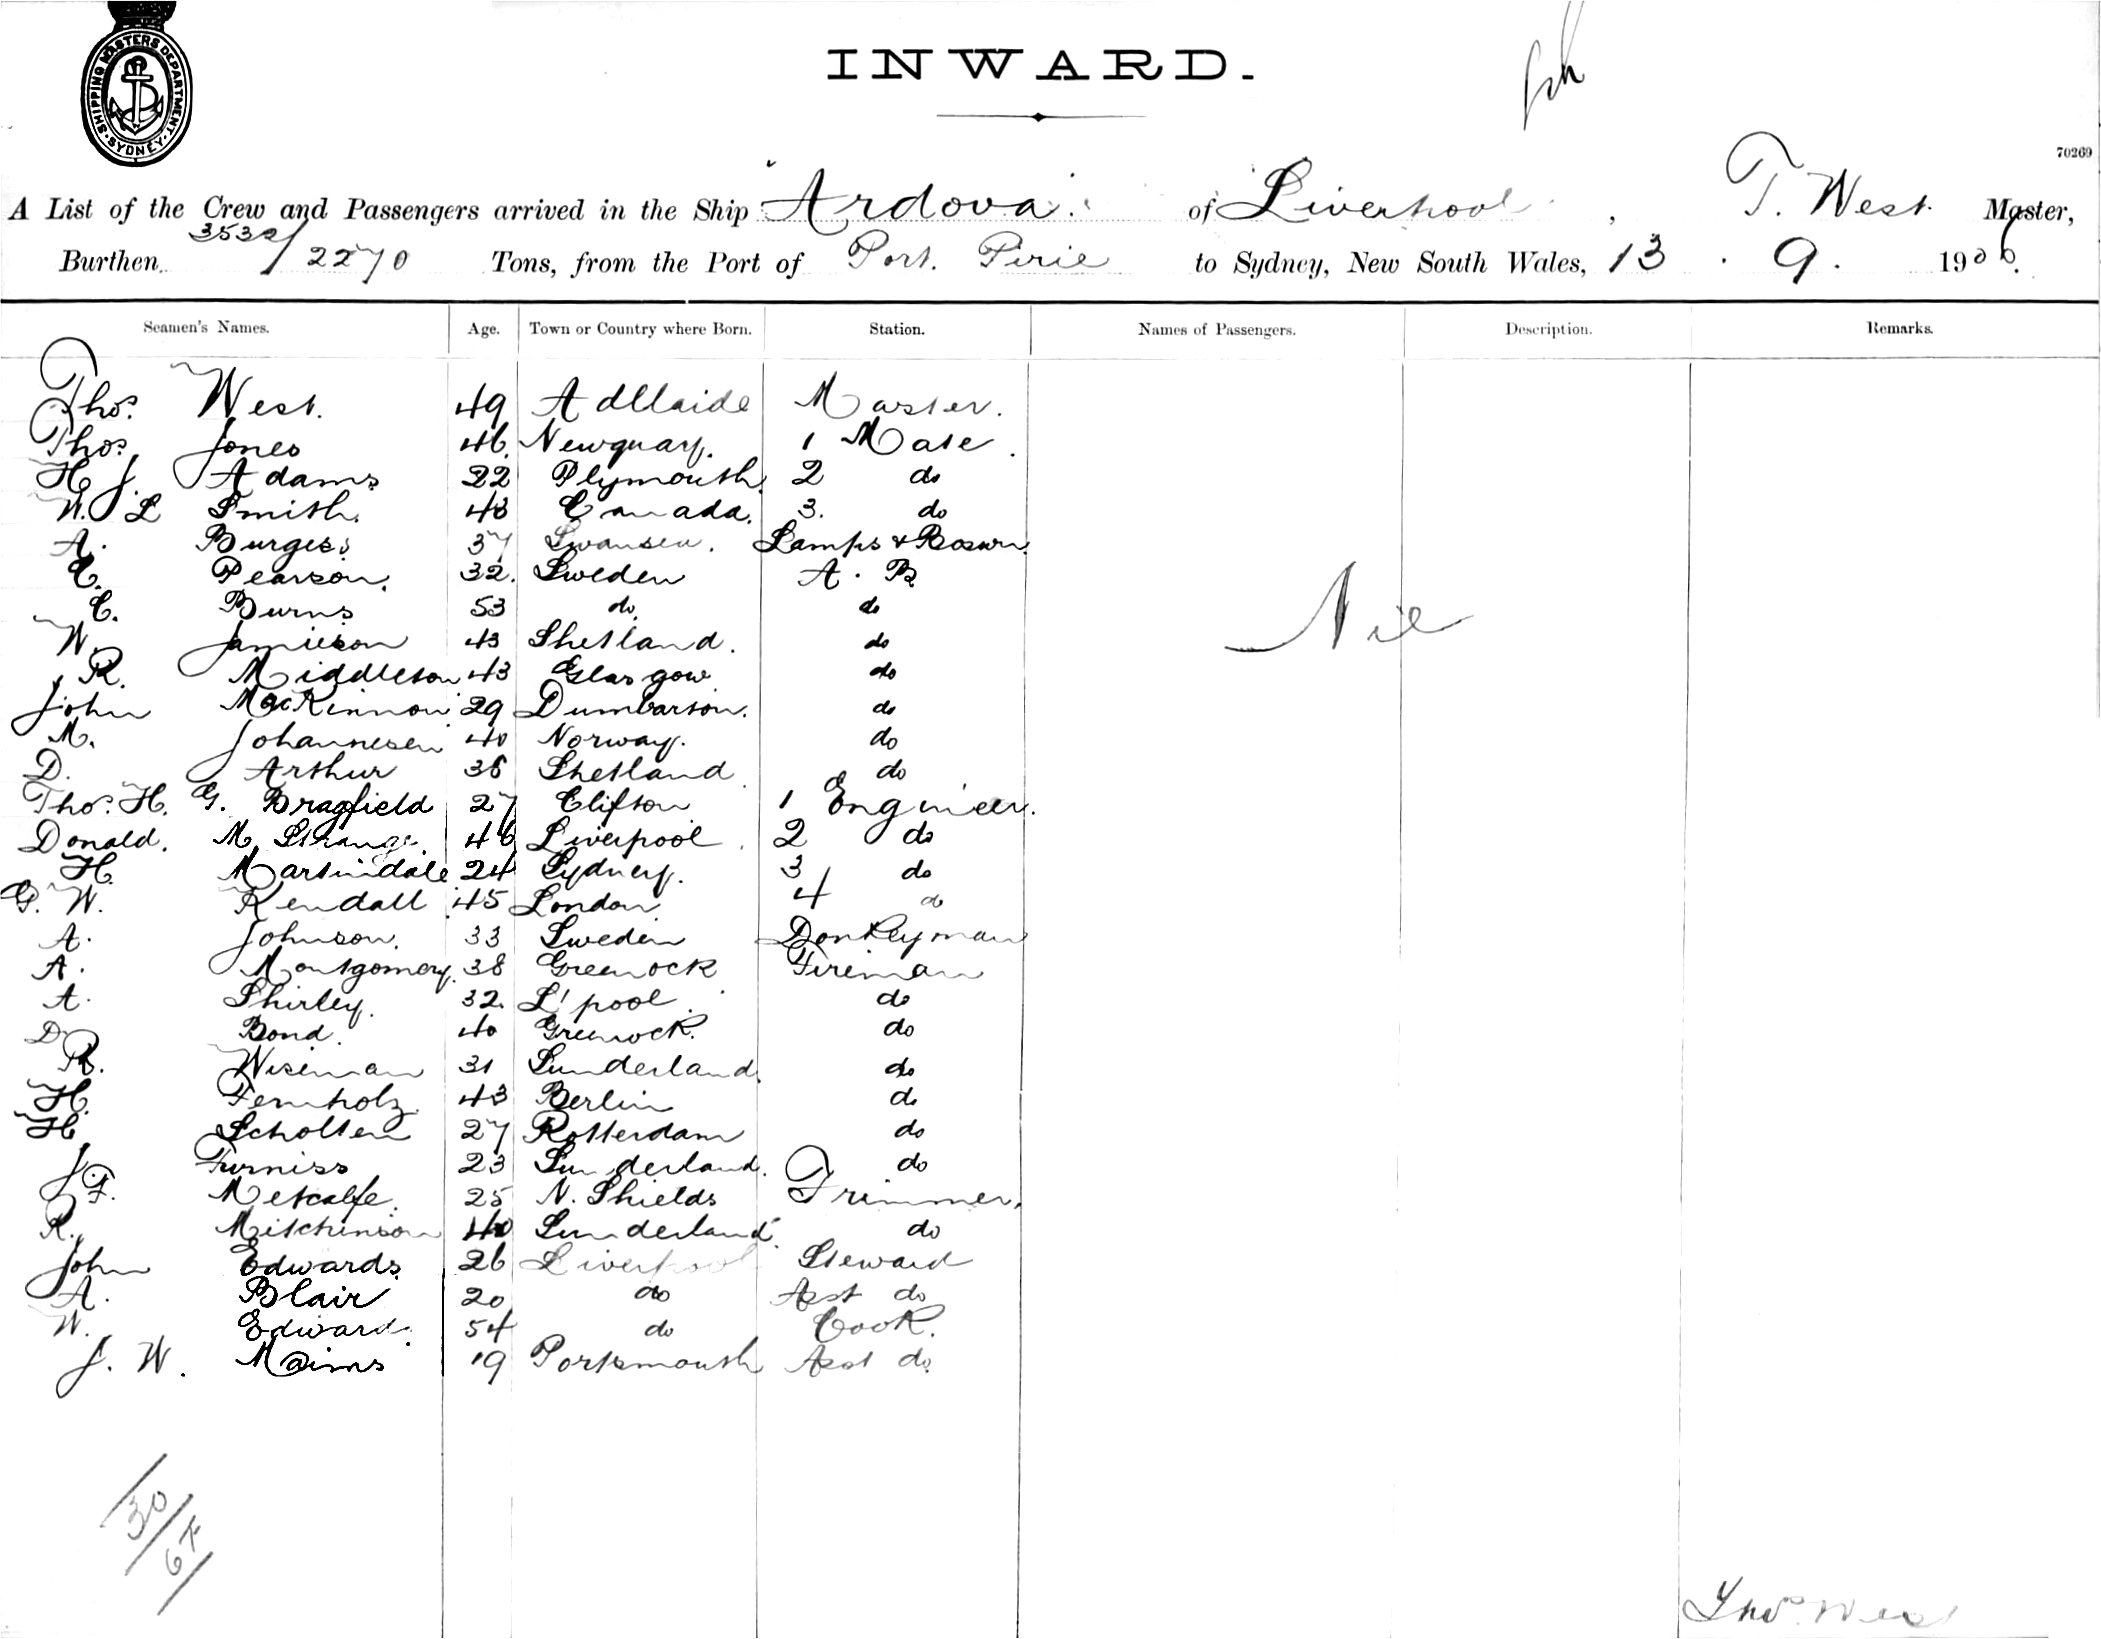 SHIPPING MASTERS DEPARTMENT
SYDNEY
INWARD.
70269
A List of the Crew and Passengers arrived in the Ship "Ardova" of Liverpool, T. West Master,
Burthen 3532/2270 Tons, from the Port of Port. Pirie to Sydney, New South Wales, 13 . 9 . 1906.
Seamen's Names. Age. Town or Country where Born. Station. Names of Passengers. Description. Remarks.
Thos. West. 49 Adllaide Master.
Thos. Jones 46. Newquay. 1 Mate.
H J. Adams 22 Plymouth. 2 do
W. L Smith. 48 Canada. 3. do
A. Burgess 37 Swansea. Lamps & Bosun.
C. Pearson. 32. Sweden A. B
C. Burns 53 do. do
W. Jamieson 43 Shetland. do
R. Middleton 43 Glasgow do
John MacKinnon 29 Dumbarton. do
M. Johannesen 40 Norway. do
D. Arthur 36 Shetland do
Thos. H. G. Bragfield 27 Clifton 1 Engineer.
Donald. M Strange. 46 Liverpool. 2 do
H. Martindale 24 Sydney. 3 do
G. W. Kendall 45 London. 4 do
A. Johnson. 33 Sweden Donkeyman
A. Montgomery. 38 Greenock Fireman
A. Shirley. 32. L'pool. do
D Bond. 40 Greenock. do
R. Wiseman 31 Sunderland. do
H. Fernholz. 43 Berlin do
H. Scholten 27 Rotterdam do
J. Furniss 23 Sunderland. do
F. Metcalfe. 25 N. Shields Trimmer.
R. Mitchinson 40 Sunderland. do
John Edwards. 26 Liverpool Steward
A. Blair 20 do Asst do
W. Edward. 54 do Cook.
J. W. Maims 19 Portsmouth Asst do.
Nil
30/67
Thos. West